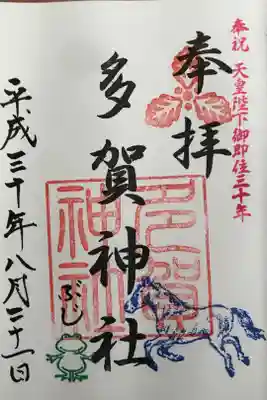 奉祝 天皇陛下御即位三十年
奉拝
多賀神社
多賀
神社
ぶじ
平成三十年八月三十一日